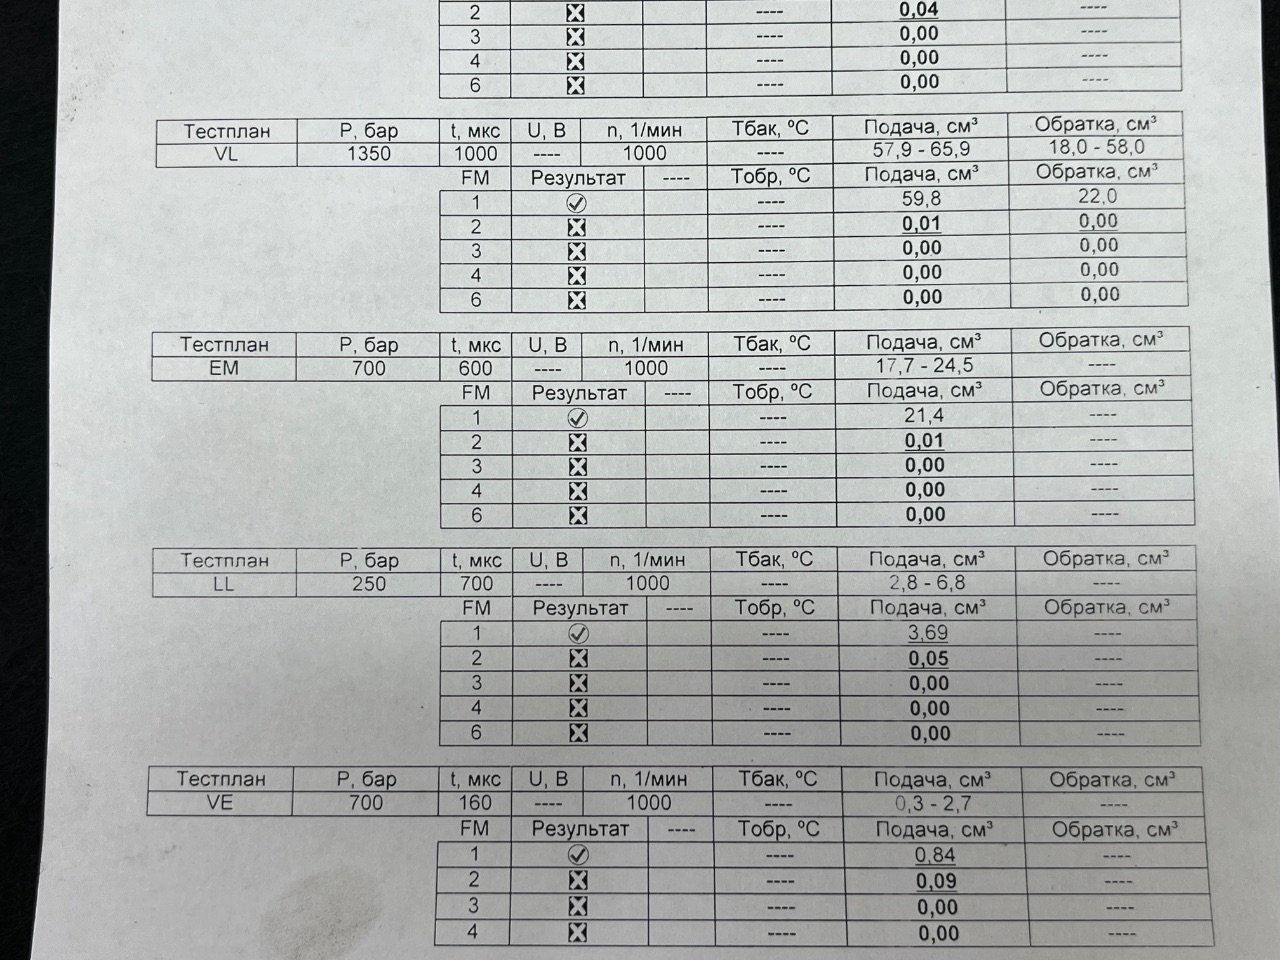 2 ---- 0,04 ----
3 ---- 0,00 ----
4 ---- 0,00 ----
6 ---- 0,00 ----
Тестплан P, бар t, мкс U, В n, 1/мин Тбак, ºC Подача, см³ Обратка, см³
VL 1350 1000 ---- 1000 ---- 57,9 - 65,9 18,0 - 58,0
FM Результат ---- Тобр, ºC Подача, см³ Обратка, см³
1 ---- 59,8 22,0
2 ---- 0,01 0,00
3 ---- 0,00 0,00
4 ---- 0,00 0,00
6 ---- 0,00 0,00
Тестплан P, бар t, мкс U, В n, 1/мин Тбак, ºC Подача, см³ Обратка, см³
EM 700 600 ---- 1000 ---- 17,7 - 24,5 ----
FM Результат ---- Тобр, ºC Подача, см³ Обратка, см³
1 ---- 21,4 ----
2 ---- 0,01 ----
3 ---- 0,00 ----
4 ---- 0,00 ----
6 ---- 0,00 ----
Тестплан P, бар t, мкс U, В n, 1/мин Тбак, ºC Подача, см³ Обратка, см³
LL 250 700 ---- 1000 ---- 2,8 - 6,8 ----
FM Результат ---- Тобр, ºC Подача, см³ Обратка, см³
1 ---- 3,69 ----
2 ---- 0,05 ----
3 ---- 0,00 ----
4 ---- 0,00 ----
6 ---- 0,00 ----
Тестплан P, бар t, мкс U, В n, 1/мин Тбак, ºC Подача, см³ Обратка, см³
VE 700 160 ---- 1000 ---- 0,3 - 2,7 ----
FM Результат ---- Тобр, ºC Подача, см³ Обратка, см³
1 ---- 0,84 ----
2 ---- 0,09 ----
3 ---- 0,00 ----
4 ---- 0,00 ----